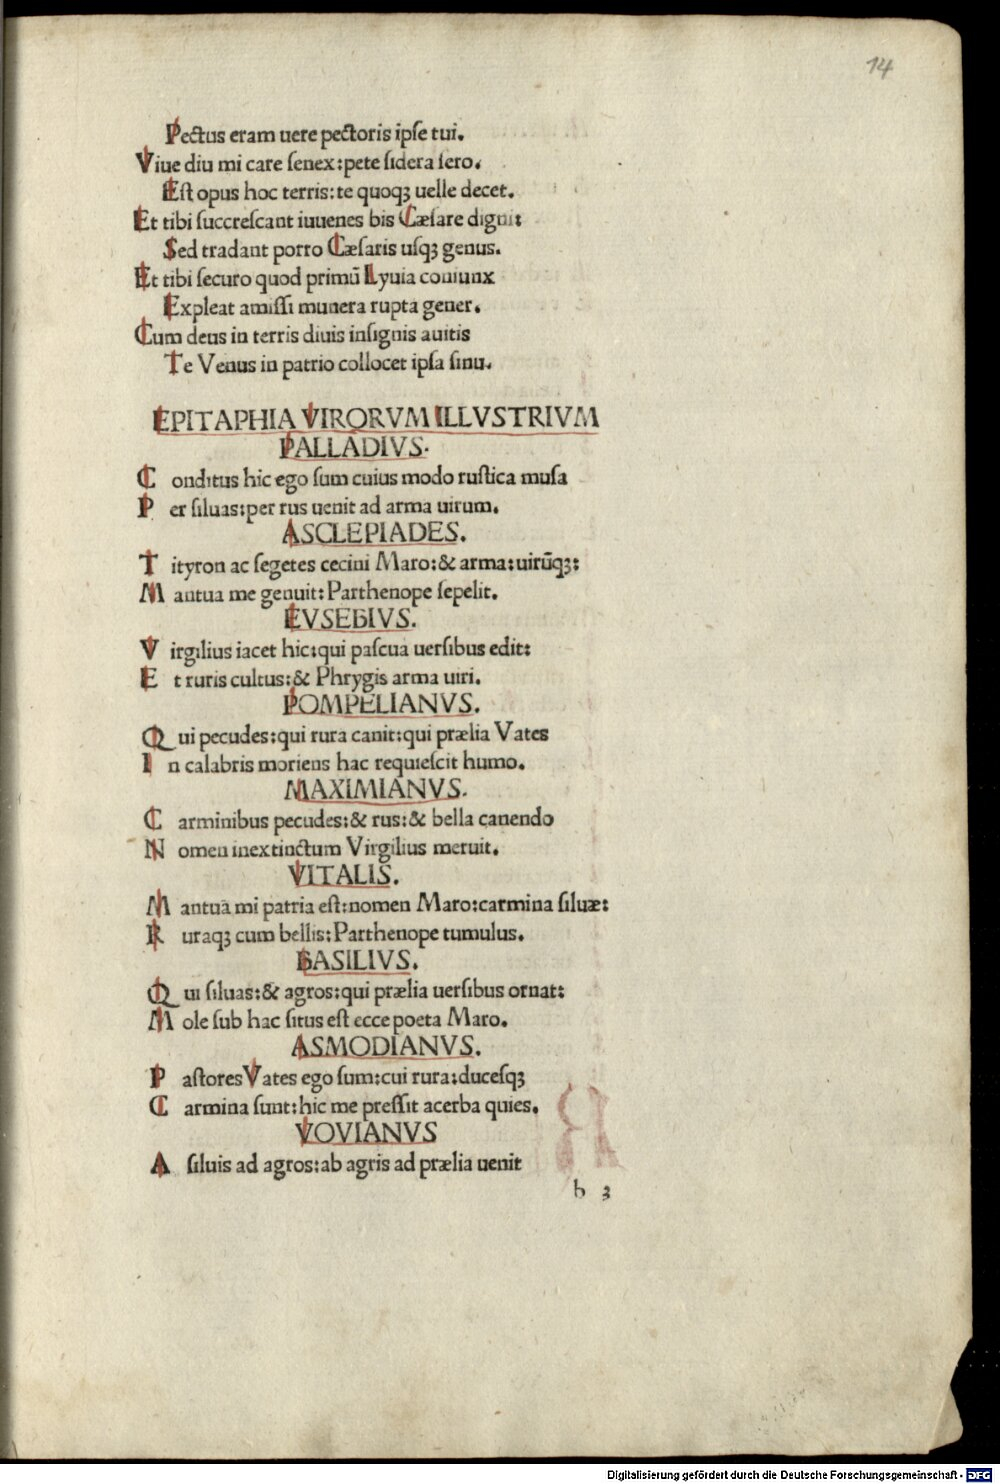 14
Pectus eram uere pectoris ipſe tui.
Viue diu mi care ſenex:pete ſidera ſero.
Eſt opus hoc terris:te quoqꝫ uelle decet.
Et tibi ſuccreſcant iuuenes bis Cæſare digni:
Sed tradant porro Cæſaris uſqꝫ genus.
Et tibi ſecuro quod primū Lyuia coniunx
Expleat amiſſi munera rupta gener.
Cum deus in terris diuis inſignis auitis
Te Venus in patrio collocet ipſa ſinu.
EPITAPHIA VIRORVM ILLVSTRIVM
PALLADIVS.
C onditus hic ego ſum cuius modo ruſtica muſa
P er ſiluas:per rus uenit ad arma uirum.
ASCLEPIADES.
T ityron ac ſegetes cecini Maro:& arma:uirūqꝫ:
M antua me genuit:Parthenope ſepelit.
EVSEBIVS.
V irgilius iacet hic:qui paſcua uerſibus edit:
E t ruris cultus:& Phrygis arma uiri.
POMPELIANVS.
Q ui pecudes:qui rura canit:qui prælia Vates
I n calabris moriens hac requieſcit humo.
MAXIMIANVS.
C arminibus pecudes:& rus:& bella canendo
N omen inextinctum Virgilius meruit.
VITALIS.
M antua mi patria eſt:nomen Maro:carmina ſiluæ:
R uraqꝫ cum bellis:Parthenope tumulus.
BASILIVS.
Q ui ſiluas:& agros:qui prælia uerſibus ornat:
M ole ſub hac ſitus eſt ecce poeta Maro.
ASMODIANVS.
P aſtores Vates ego ſum:cui rura:duceſqꝫ
C armina ſunt:hic me preſſit acerba quies.
VOVIANVS
A ſiluis ad agros:ab agris ad prælia uenit
b 3
Digitalisierung gefördert durch die Deutsche Forschungsgemeinschaft - DFG